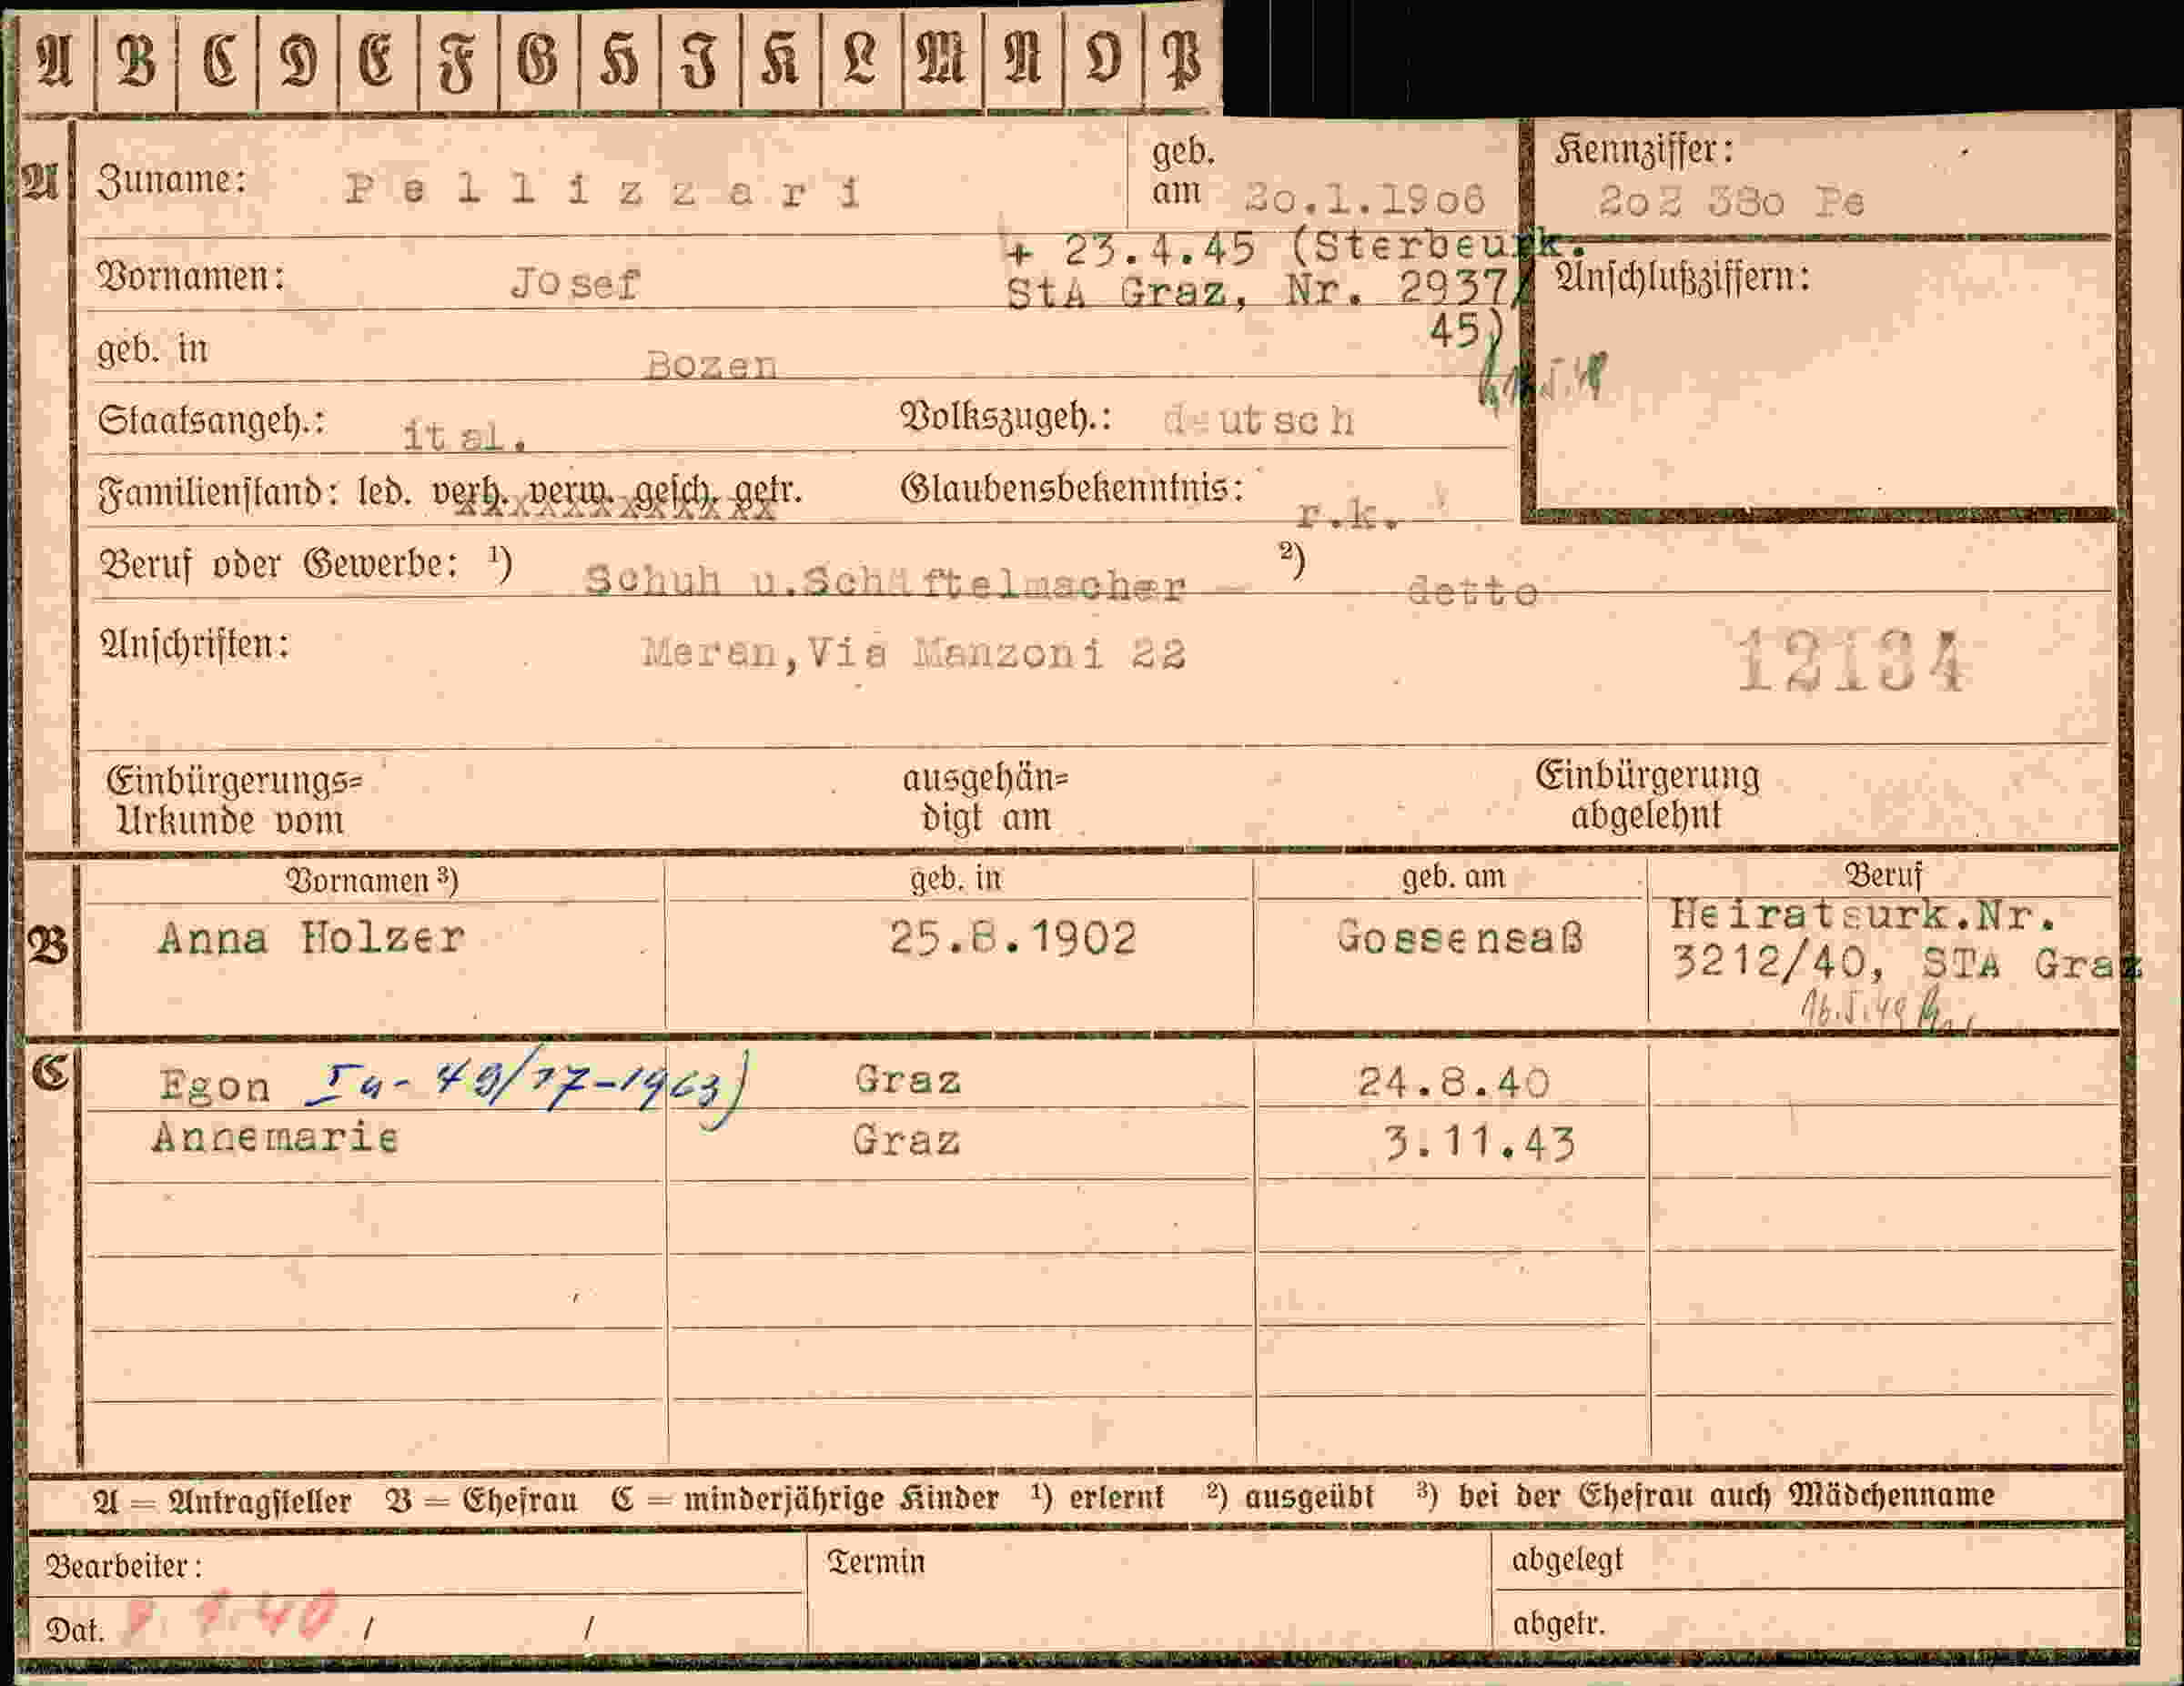 A B C D E F G H I K L M N O P
A Zuname: Pellizzari geb. am 20.1.1906 Kennziffer: 202 380 Pe
+ 23.4.45 (Sterbeurk.
Vornamen: Josef StA Graz, Nr. 2937/ Anschlußziffern:
45)
geb. in Bozen
Staatsangeh.: ital. Volkszugeh.: deutsch
Familienstand: led. verh. verw. gesch. getr. Glaubensbekenntnis: r.k.
Beruf oder Gewerbe: ¹) Schuh u.Schäftelmacher — ²) detto
Anschriften: Meran, Via Manzoni 22 12134
Einbürgerungs= ausgehän= Einbürgerung
Urkunde vom digt am abgelehnt
Vornamen ³) geb. in geb. am Beruf
B Anna Holzer 25.8.1902 Gossensaß Heiratsurk.Nr.
3212/40, STA Graz
16.5.49
C Egon Ia-49/17-1963) Graz 24.8.40
Annemarie Graz 3.11.43
A = Antragsteller B = Ehefrau C = minderjährige Kinder ¹) erlernt ²) ausgeübt ³) bei der Ehefrau auch Mädchenname
Bearbeiter: Termin abgelegt
Dat. / / abgetr.